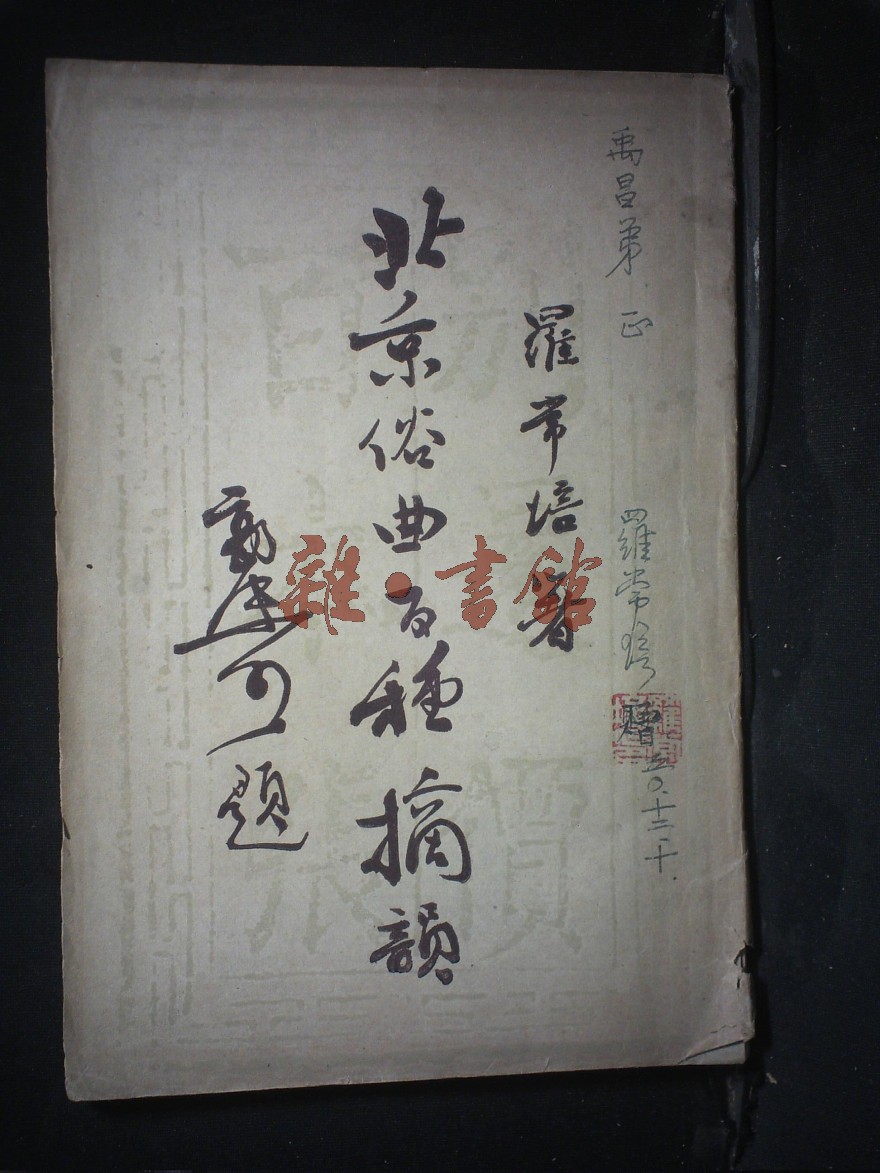 禹昌弟 正
羅常培 贈 五〇.十二.十.
羅常培著
北京俗曲百種摘韻
題
雜·書館